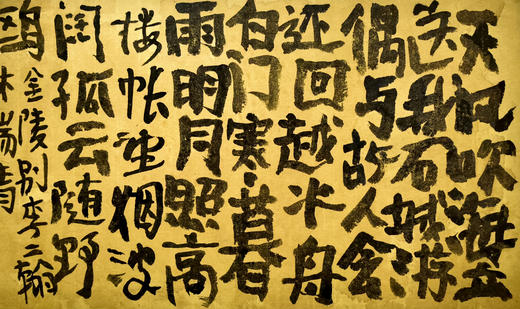 天风吹海立
送我石城游
偶与故人会
还回越水舟
白门寒暮
雨明月照高
楼帐望烟波
阔孤云随野
鸥
金陵别李二翰
林